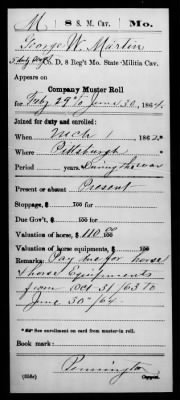 M 8 S. M. Cav. Mo.
George W. Martin
Co. D, 8 Reg't Mo. State Militia Cav.
Appears on
Company Muster Roll
for Feby 29 to June 30, 1864.
Joined for duty and enrolled:
When Mch 1 1862
Where Pittsburgh
Period years. During the war
Present or absent Present
Stoppage, $ 100 for
Due Gov't, $ 100 for
Valuation of horse, $ 110.00
Valuation of horse equipments, $ 100
Remarks: Pay due for horse
& horse Equipments
from Oct 31/63 to
June 30/64
* See enrollment on card from muster-in roll.
Book mark:
Pennington
(358c) Copyist.